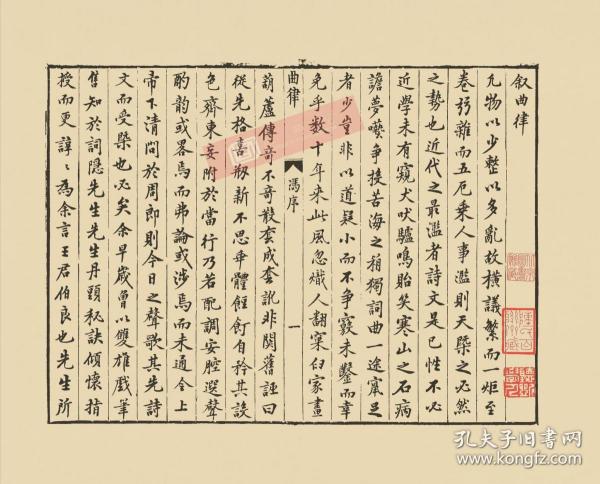 叙曲律
凡物以少整以多亂故橫議繁而一炬至
卷彀雜而五厄乗人事濫則天槩之必然
之勢也近代之最濫者詩文是已性不必
近學未有窺犬吠驢鳴貽笑寒山之石病
譫夢囈爭投苦海之箱獨詞曲一途窠足
者少豈非以道疑小而不争竅未鑿而幸
免乎數十年来此風忽熾人翻窠臼家畫
曲律
馮序
一
葫蘆傳奇不奇散套成套訛非関舊誣曰
從先格喜刱新不思乖體飣餖自矜其設
色齊東妄附於當行乃若配調安腔選聲
酌韵或畧焉而弗論或涉焉而未通令上
帝下清問於周郎則今日之聲歌其先詩
文而受槩也必矣余早歲曾以雙雄戲筆
售知於詞隱先生先生丹頭秘訣傾懷指
授而更諄〻為余言王君伯良也先生所
孔夫子旧书网
www.kongfz.com